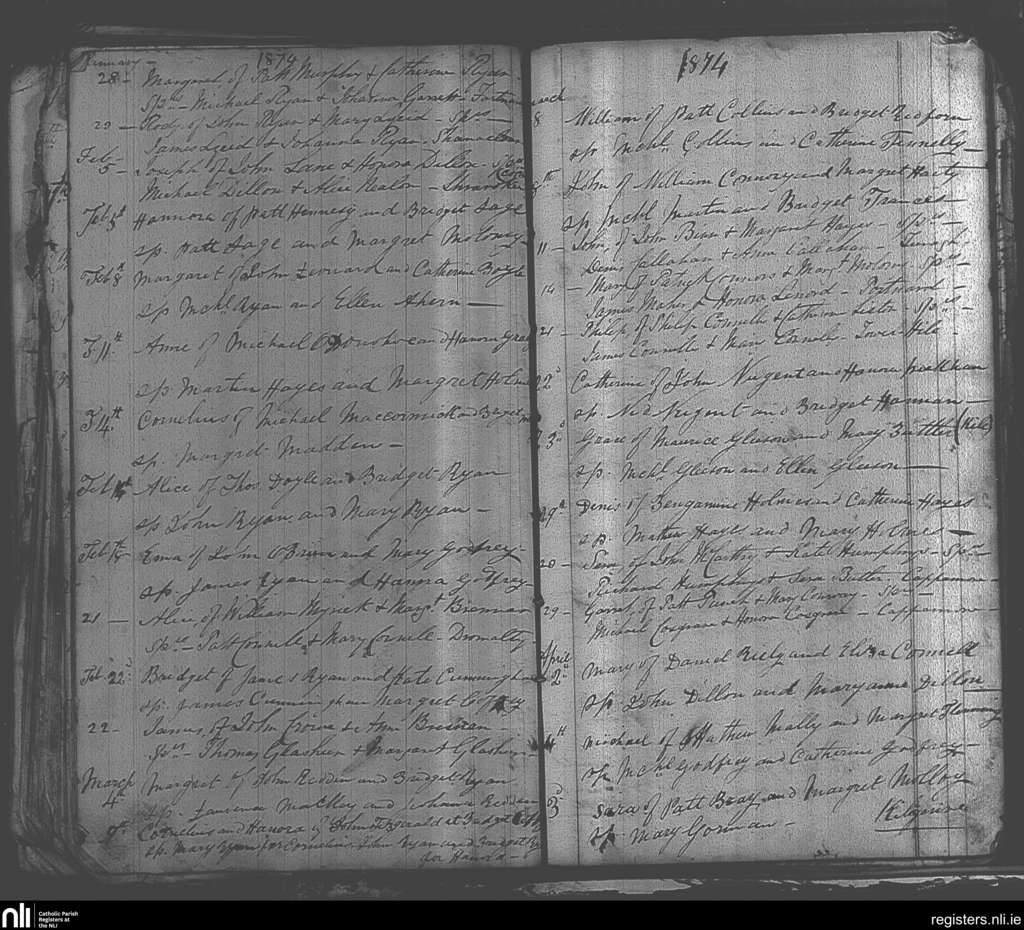 January - 1874
28 - Margaret of Patt Murphy & Catherine Ryan -
Sp.rs - Michael Ryan & Johanna Garrett -
29 - Rody, of John Ryan & Mary - Sps -
James & Johanna Ryan -
Feb - 5 - Joseph of John Lane & Honora Dillon - Sps
Michael Dillon & Alice Nealon -
Feb 8th Hannora of Patt Hennesy and Bridget Sage
Sp. Patt Sage and Margret Moloney
Feb 8th Margaret of John Leonard and Catherine Boyle
Sp Mchl Ryan and Ellen Ahern -
F 11th Anne of Michael O Donohoe and Hanora Grady
Sp Martin Hayes and Margret
F 14th Cornelius of Michael Maccormick and Bridget
Sp. Margret Madden -
Feb Alice of Thos Doyle and Bridget Ryan
Sp John Ryan and Mary Ryan -
Feb 18th Ema of John O Brien and Mary Godfrey -
Sp. James Ryan and Hanora Godfrey
21 - Alice, of William & Margt Brennan
Sps - Patt Connell & Mary Connell -
Feb 22d Bridget of James Ryan and Kate Cunningham
Sp. James Cunningham Margret
22 - James, of John Crowe & Ann Brennan -
Sps - Thomas Glasheen & Margaret Glasheen
March 4th Margret of John Redden and Bridget Ryan
Sp. Laurence Mackey and Johanna Redden
9th Cornelius and Hanora of John Fitzgerald
Sp. Mary Ryan for Cornelius. John Ryan and Bridget
for Hanora -
1874
8 William of Patt Collins and Bridget
Sp. Mchl. Collins and Catherine Fennelly -
th John of William Connory and Margret Harty
Sp. Mchl Martin and Bridget Frances -
11 - John, of John Benn & Margaret Hayes - Sps -
Denis Callahan & Callahan -
14 - Mary of Patrick Connors & Margt Molony - Sps -
James Maher & Honora Lenord -
21 - Philip of Philip Connell & Catherine - Sps -
James Connell & - Tower Hill -
22d Catherine of John Nugent and Hanora
Sp. Ned Nugent and Bridget -
3d Grace of Maurice Gleeson and Mary Buttler
Sp. Mchl. Gleeson and Ellen Gleeson -
29th Denis of Bengamine Holmes and Catherine Hayes
Sp. Mathew Hayes and Mary Holmes -
20 - of John McCarthy & Kate Humphrys - Sps -
Richard Humphrys & Sera Butler - Cappamore -
29 - Garret, of Patt Punch & Mary Conway - Sps -
Michael Cosgrave & Honora Cosgrave - Cappamore -
April 2d Mary of Daniel Riely and Eliza Connell
Sp. John Dillon and Maryanne Dillon
4th Michael of Mathew Mally and Margret Flemming
Sp Mchl Godfrey and Catherine Godfrey
3d Sara of Patt Bray and Margret Molloy
Sp. Mary Gorman -
nli
Catholic Parish
Registers at
the NLI
registers.nli.ie